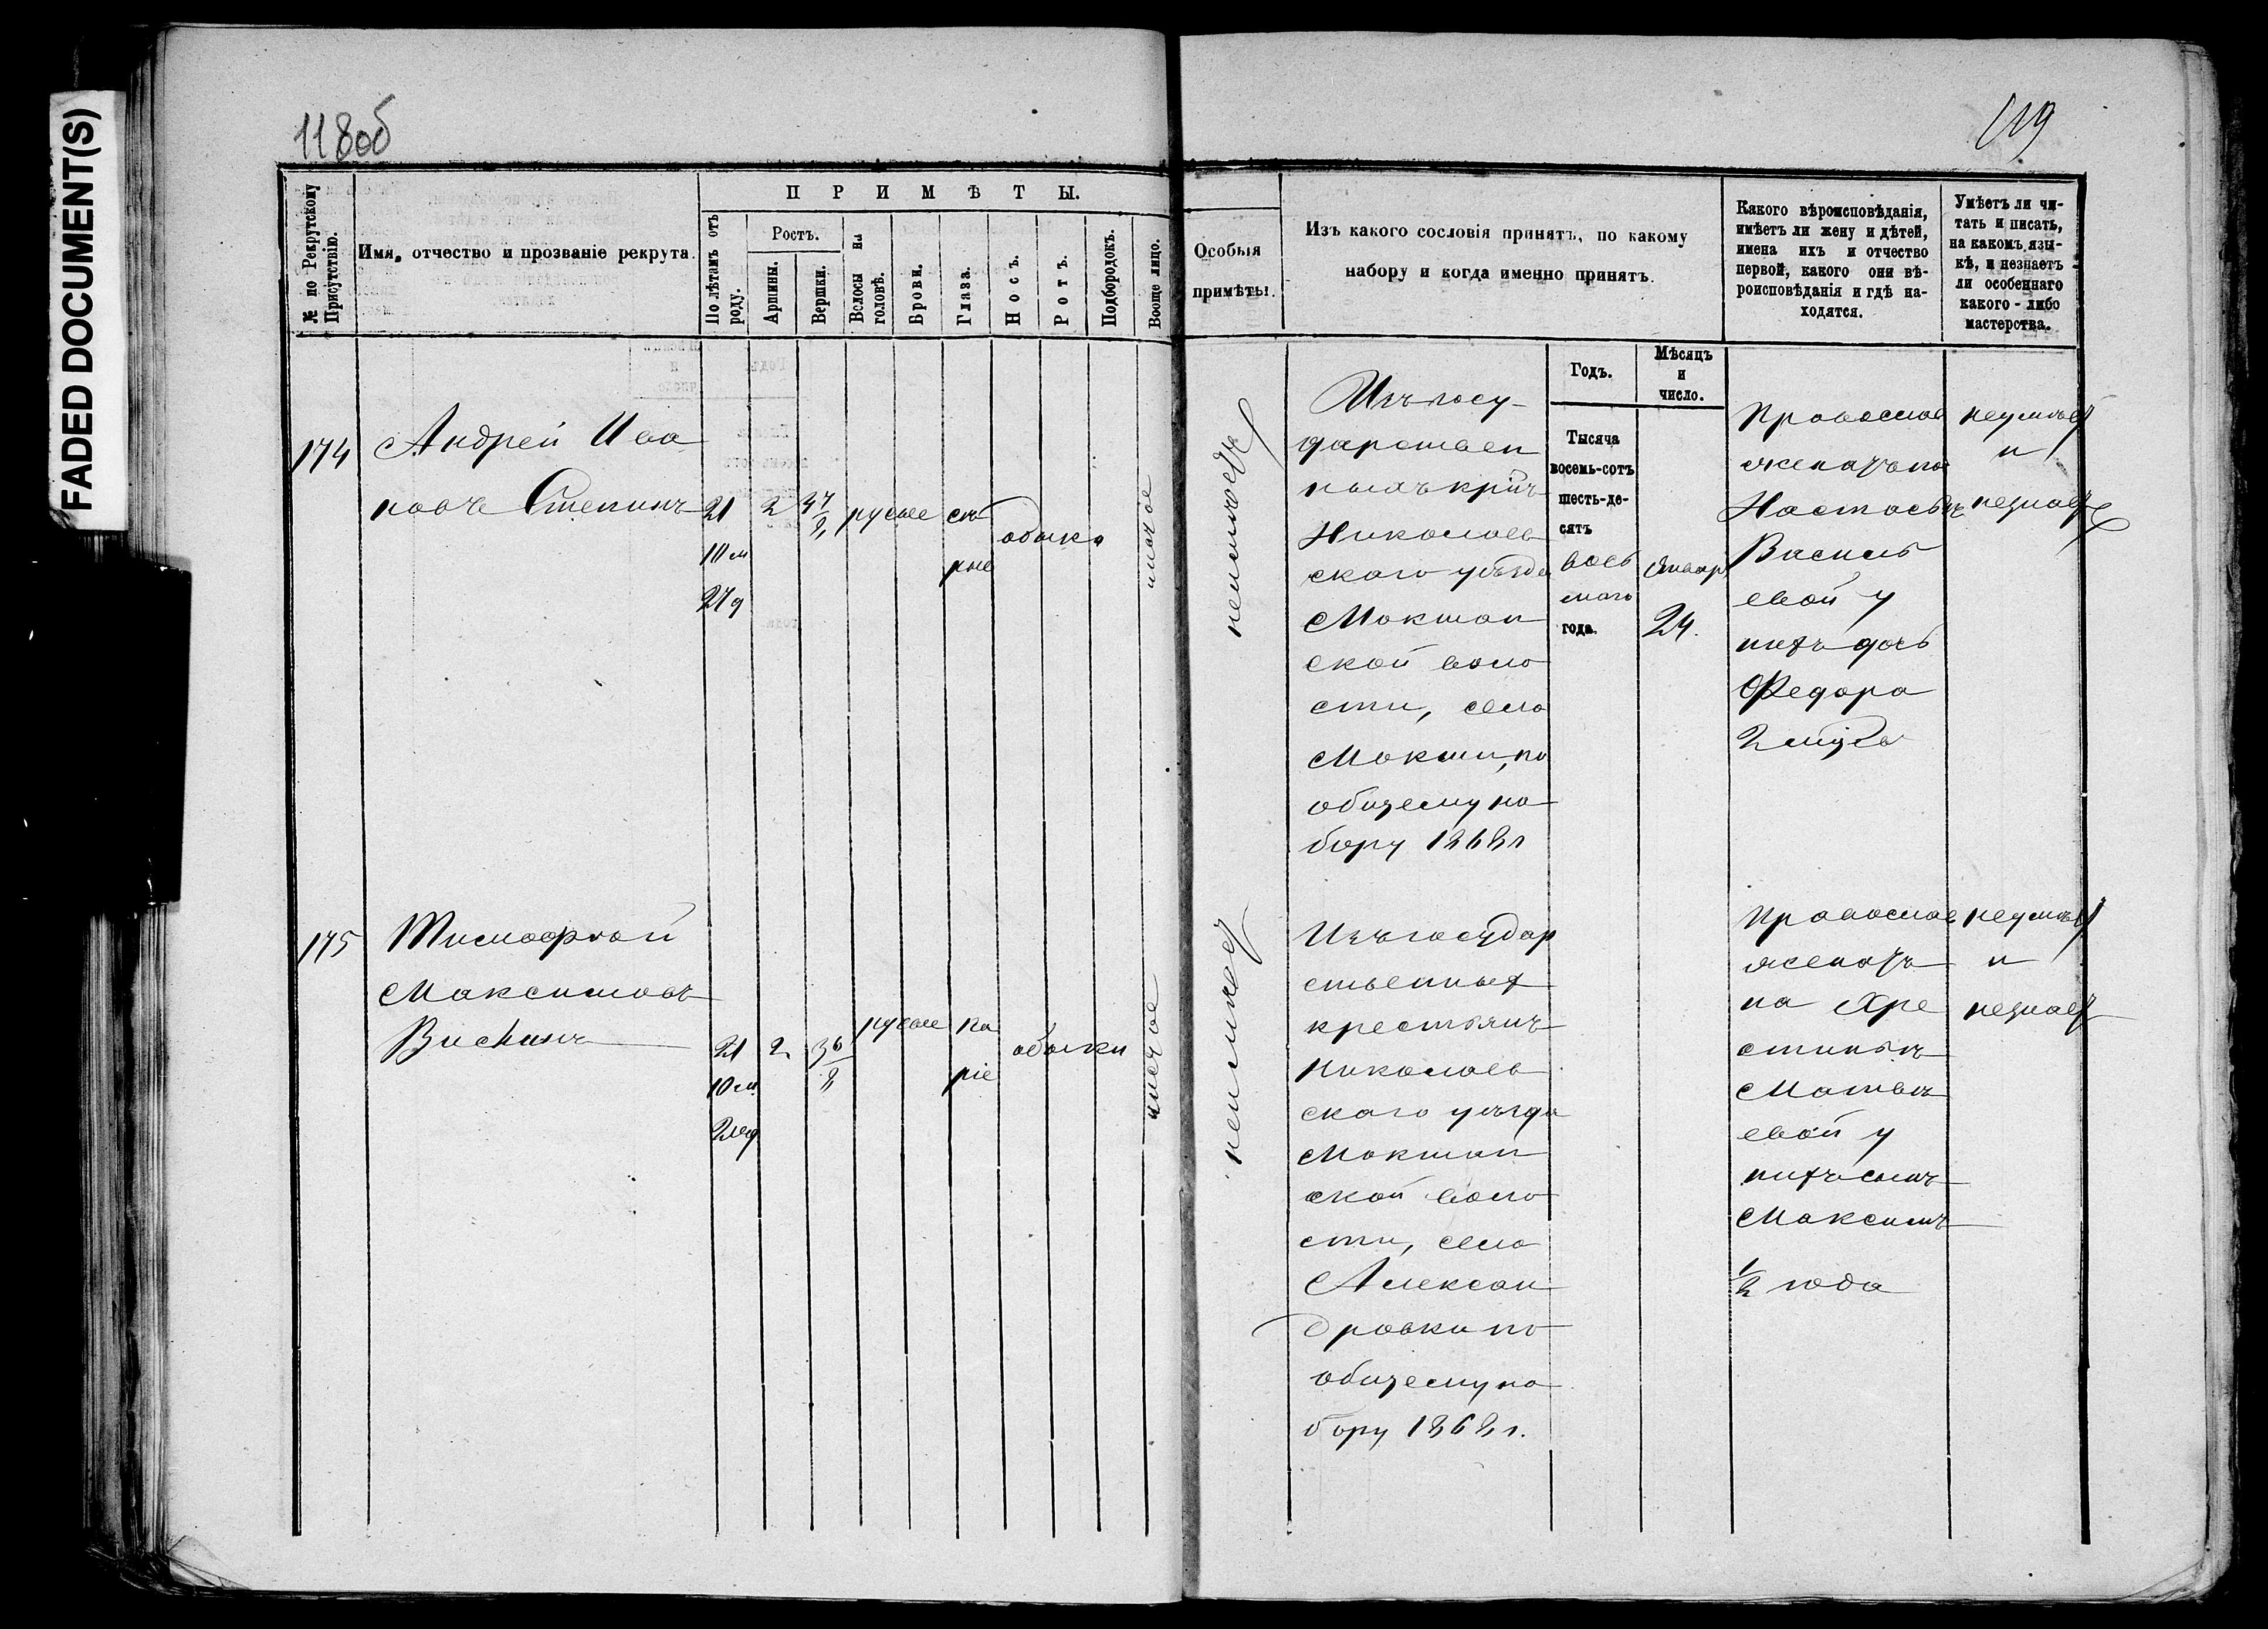 FADED DOCUMENT(S)
118об
119
№ по Рекрутскому Присутствію.
Имя, отчество и прозваніе рекрута.
ПРИМѢТЫ.
По лѣтамъ отъ роду.
Ростъ.
Аршины.
Вершки.
Волосы на головѣ.
Брови.
Глаза.
Носъ.
Ротъ.
Подбородокъ.
Вообще лицо.
Особыя
примѣты.
Изъ какого сословія принятъ, по какому
набору и когда именно принятъ.
Какого вѣроисповѣданія,
имѣетъ ли жену и дѣтей,
имена ихъ и отчество
первой, какого они вѣ-
роисповѣданія и гдѣ на-
ходятся.
Умѣетъ ли чи-
тать и писать,
на какомъ язы-
кѣ, и незнаетъ
ли особеннаго
какого-либо
мастерства.
174
Андрей Ива
новъ Степинъ
21
10 м
27 д
2
3 7/8
русые
сѣ
рые
обыкн
чистое
неимѣетъ
Изъ госу
дарствен
ныхъ крнъ
Николаев
скаго уѣзда
Мокшан
ской воло
сти, села
Мокши, по
общему на
бору 1868 г
Годъ.
Тысяча
восемь-сотъ
шесть-де-
сятъ
вось
маго
года.
Мѣсяцъ
и
число.
Январ
24.
Православ
женатъ на
Настасьѣ
Василь
евой у
нихъ дочь
Федора
неумѣет
и
незнает
175
Тимофей
Максимовъ
21
10 м
2
3 6/8
русые
ка
ріе
обыкн
чистое
неимѣет
Изъ государ
ственных
крестьянъ
Николаев
скаго уѣзда
Мокшан
ской воло
сти, села
Алексан
дровки по
общему на
бору 1868 г.
Православ
женатъ
на Хре
стиньѣ
Матвѣ
евой у
нихъ сынъ
Максимъ
1/2 года
неумѣет
и
незнает